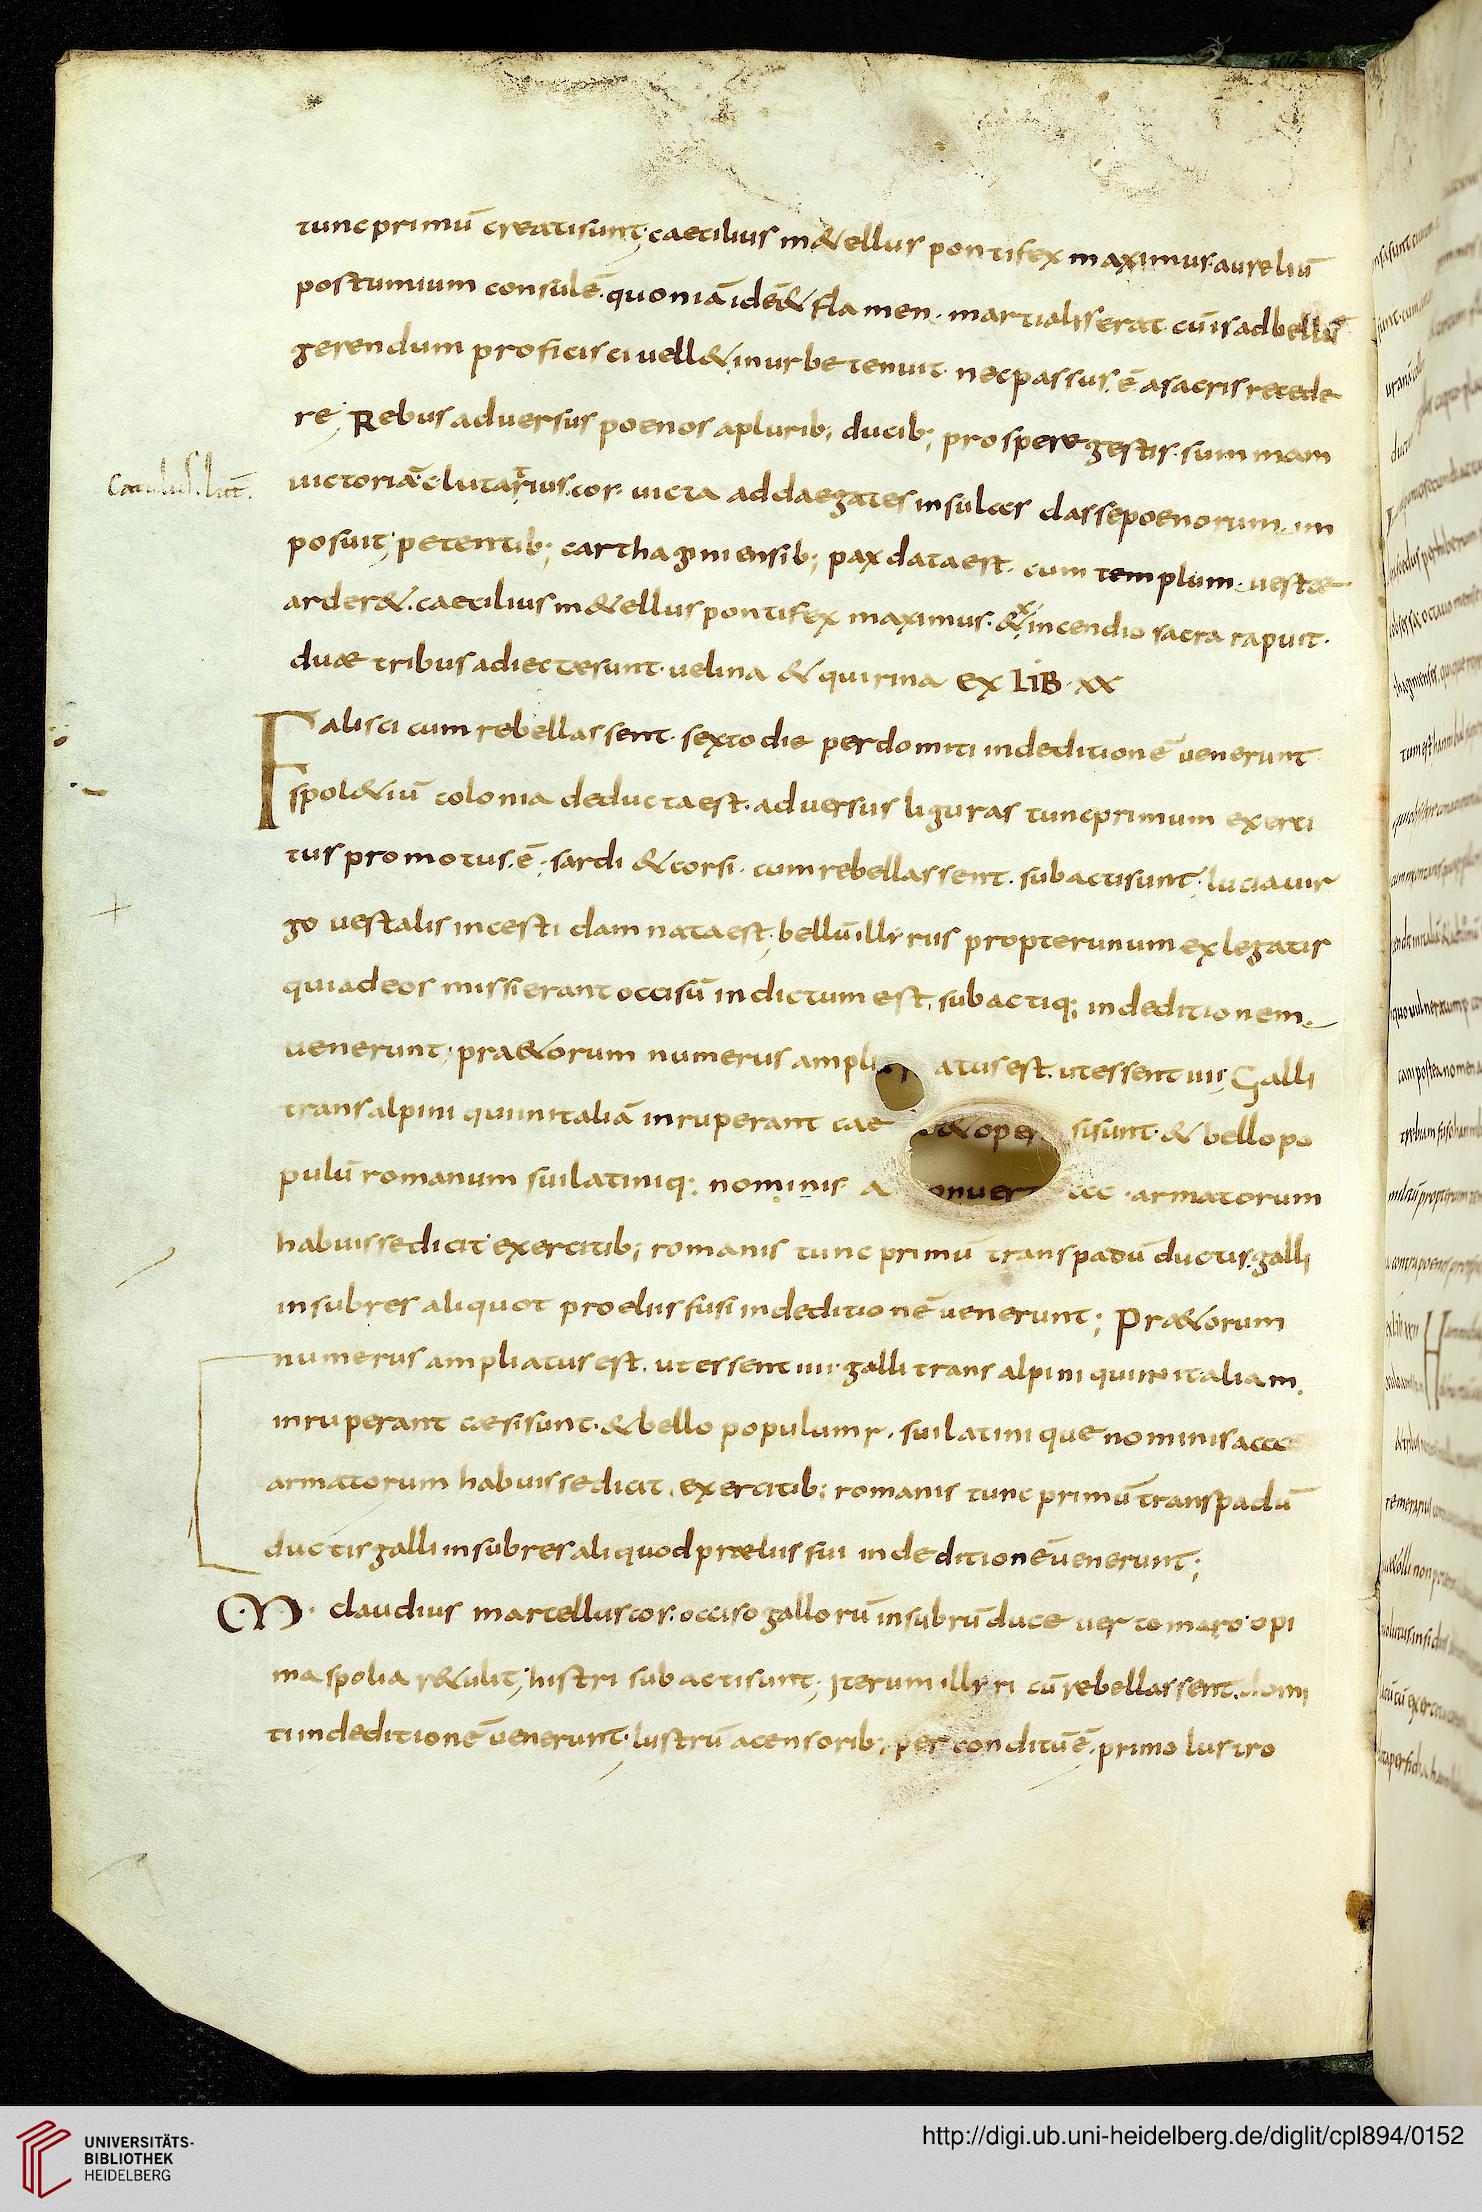 tunc primū creati sunt; caecilius m&ellus pontifex maximus. aureliū
postumium consulē. quoniā idē & flamen. martialis erat. cū is ad bellū
gerendum proficisci uell& in urbe tenuit. nec passus. ē a sacris recede
re; Rebus aduersus poenos a plurib; ducib; prospere gestis. summam
Catulus. lut.
uictoriae. c lutatius. cos. uicta ad daegates insulas classe poenorum. im
posuit; petentib; carthaginiensib; pax data est. cum templum. uestae
arder&. caecilius m&ellus pontifex maximus. &x incendio sacra rapuit.
duae tribus adiectae sunt. uelina & quirina EX LIB. XX
Falisci cum rebellassent. sexto die perdomiti in deditionē uenerunt.
spol&iū colonia deducta est. aduersus liguras tunc primum exerci
tus promotus. ē. sardi & corsi. cum rebellassent. subacti sunt. lucia uir
go uestalis incesti damnata est; bellū illyriis propter unum ex legatis
qui ad eos missi erant occisū indictum est. subactiq; in deditionem.
uenerunt; pra&orum numerus ampli atus est. ut essent IIII; Galli
transalpini qui in italiā inruperant cae si sunt. & bello po
pulū romanum sui latiniq; nominis a ccc. armatorum
habuisse dicit. exercitib; romanis tunc primū trans padū ductis. galli
insubres aliquot proeliis fusi in deditionē uenerunt; Pra&orum
numerus ampliatus est. ut essent IIII. galli transalpini qui in italiam.
inruperant caesi sunt. & bello populum r. sui latinique nominis accc
armatorum habuisse dicit. exercitib; romanis tunc primū trans padū
ductis galli insubres aliquod praeliis fui in deditionē uenerunt;
M. claudius marcellus cos. occiso gallorū insubrū duce uertomaro. opi
ma spolia r&ulit; histri subacti sunt; iterum illyri cū rebellassent. domi
ti in deditionē uenerunt. lustrū a censorib; per conditū ē. primo lustro
UNIVERSITÄTS-
BIBLIOTHEK
HEIDELBERG
http://digi.ub.uni-heidelberg.de/diglit/cpl894/0152